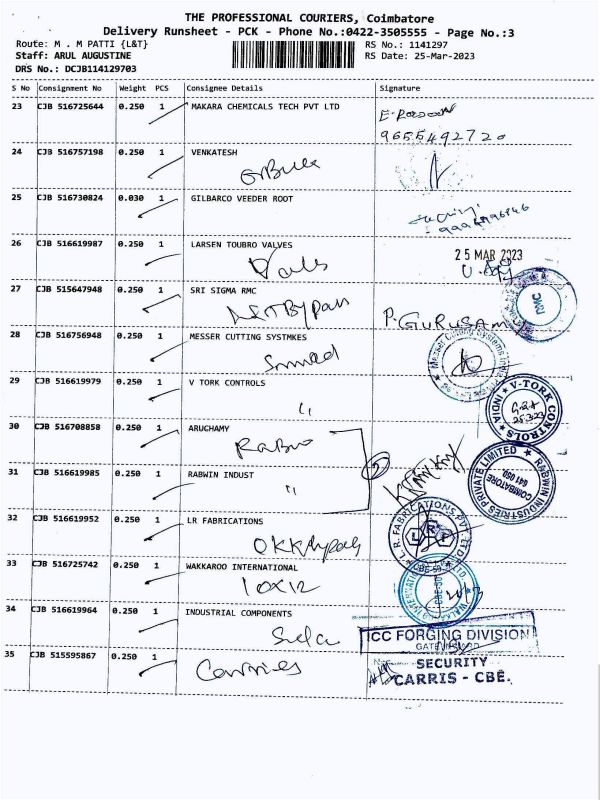 THE PROFESSIONAL COURIERS, Coimbatore
Delivery Runsheet - PCK - Phone No.:0422-3505555 - Page No.:3
Route: M . M PATTI {L&T} RS No.: 1141297
Staff: ARUL AUGUSTINE RS Date: 25-Mar-2023
DRS No.: DCJB114129703
S No Consignment No Weight PCS Consignee Details Signature
23 CJB 516725644 0.250 1 MAKARA CHEMICALS TECH PVT LTD
9655492720
24 CJB 516757198 0.250 1 VENKATESH
25 CJB 516730824 0.030 1 GILBARCO VEEDER ROOT
26 CJB 516619987 0.250 1 LARSEN TOUBRO VALVES
25 MAR 2023
27 CJB 515647948 0.250 1 SRI SIGMA RMC
P. GURUSAMY
28 CJB 516756948 0.250 1 MESSER CUTTING SYSTMKES
Messer Cutting Systems
29 CJB 516619979 0.250 1 V TORK CONTROLS
V-TORK CONTROLS INDIA
30 CJB 516708858 0.250 1 ARUCHAMY
31 CJB 516619985 0.250 1 RABWIN INDUST
RABWIN INDUSTRIES PRIVATE LIMITED
COIMBATORE
641 050
32 CJB 516619952 0.250 1 LR FABRICATIONS
L.R. FABRICATIONS PVT. LTD
LRF
CBE-50
33 CJB 516725742 0.250 1 WAKKAROO INTERNATIONAL
10x12
34 CJB 516619964 0.250 1 INDUSTRIAL COMPONENTS
ICC FORGING DIVISION
35 CJB 515595867 0.250 1
SECURITY
CARRIS - CBE.